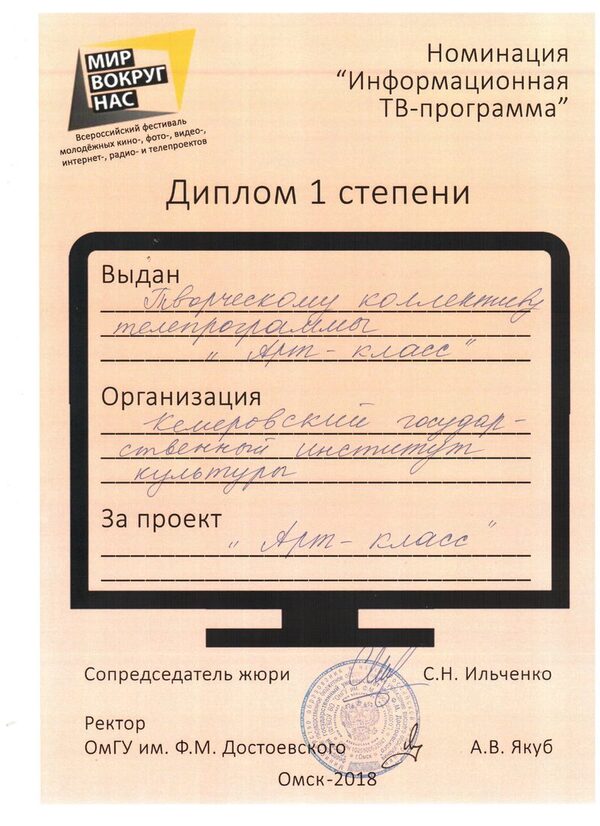 МИР
ВОКРУГ
НАС
Всероссийский фестиваль
молодёжных кино-, фото-, видео-,
интернет-, радио- и телепроектов
Номинация
“Информационная
ТВ-программа”
Диплом 1 степени
Выдан
Творческому коллективу
телепрограммы
„ Арт - класс "
Организация
Кемеровский государ-
ственный институт
культуры
За проект
„ Арт - класс "
Сопредседатель жюри С.Н. Ильченко
Ректор
ОмГУ им. Ф.М. Достоевского А.В. Якуб
Омск-2018